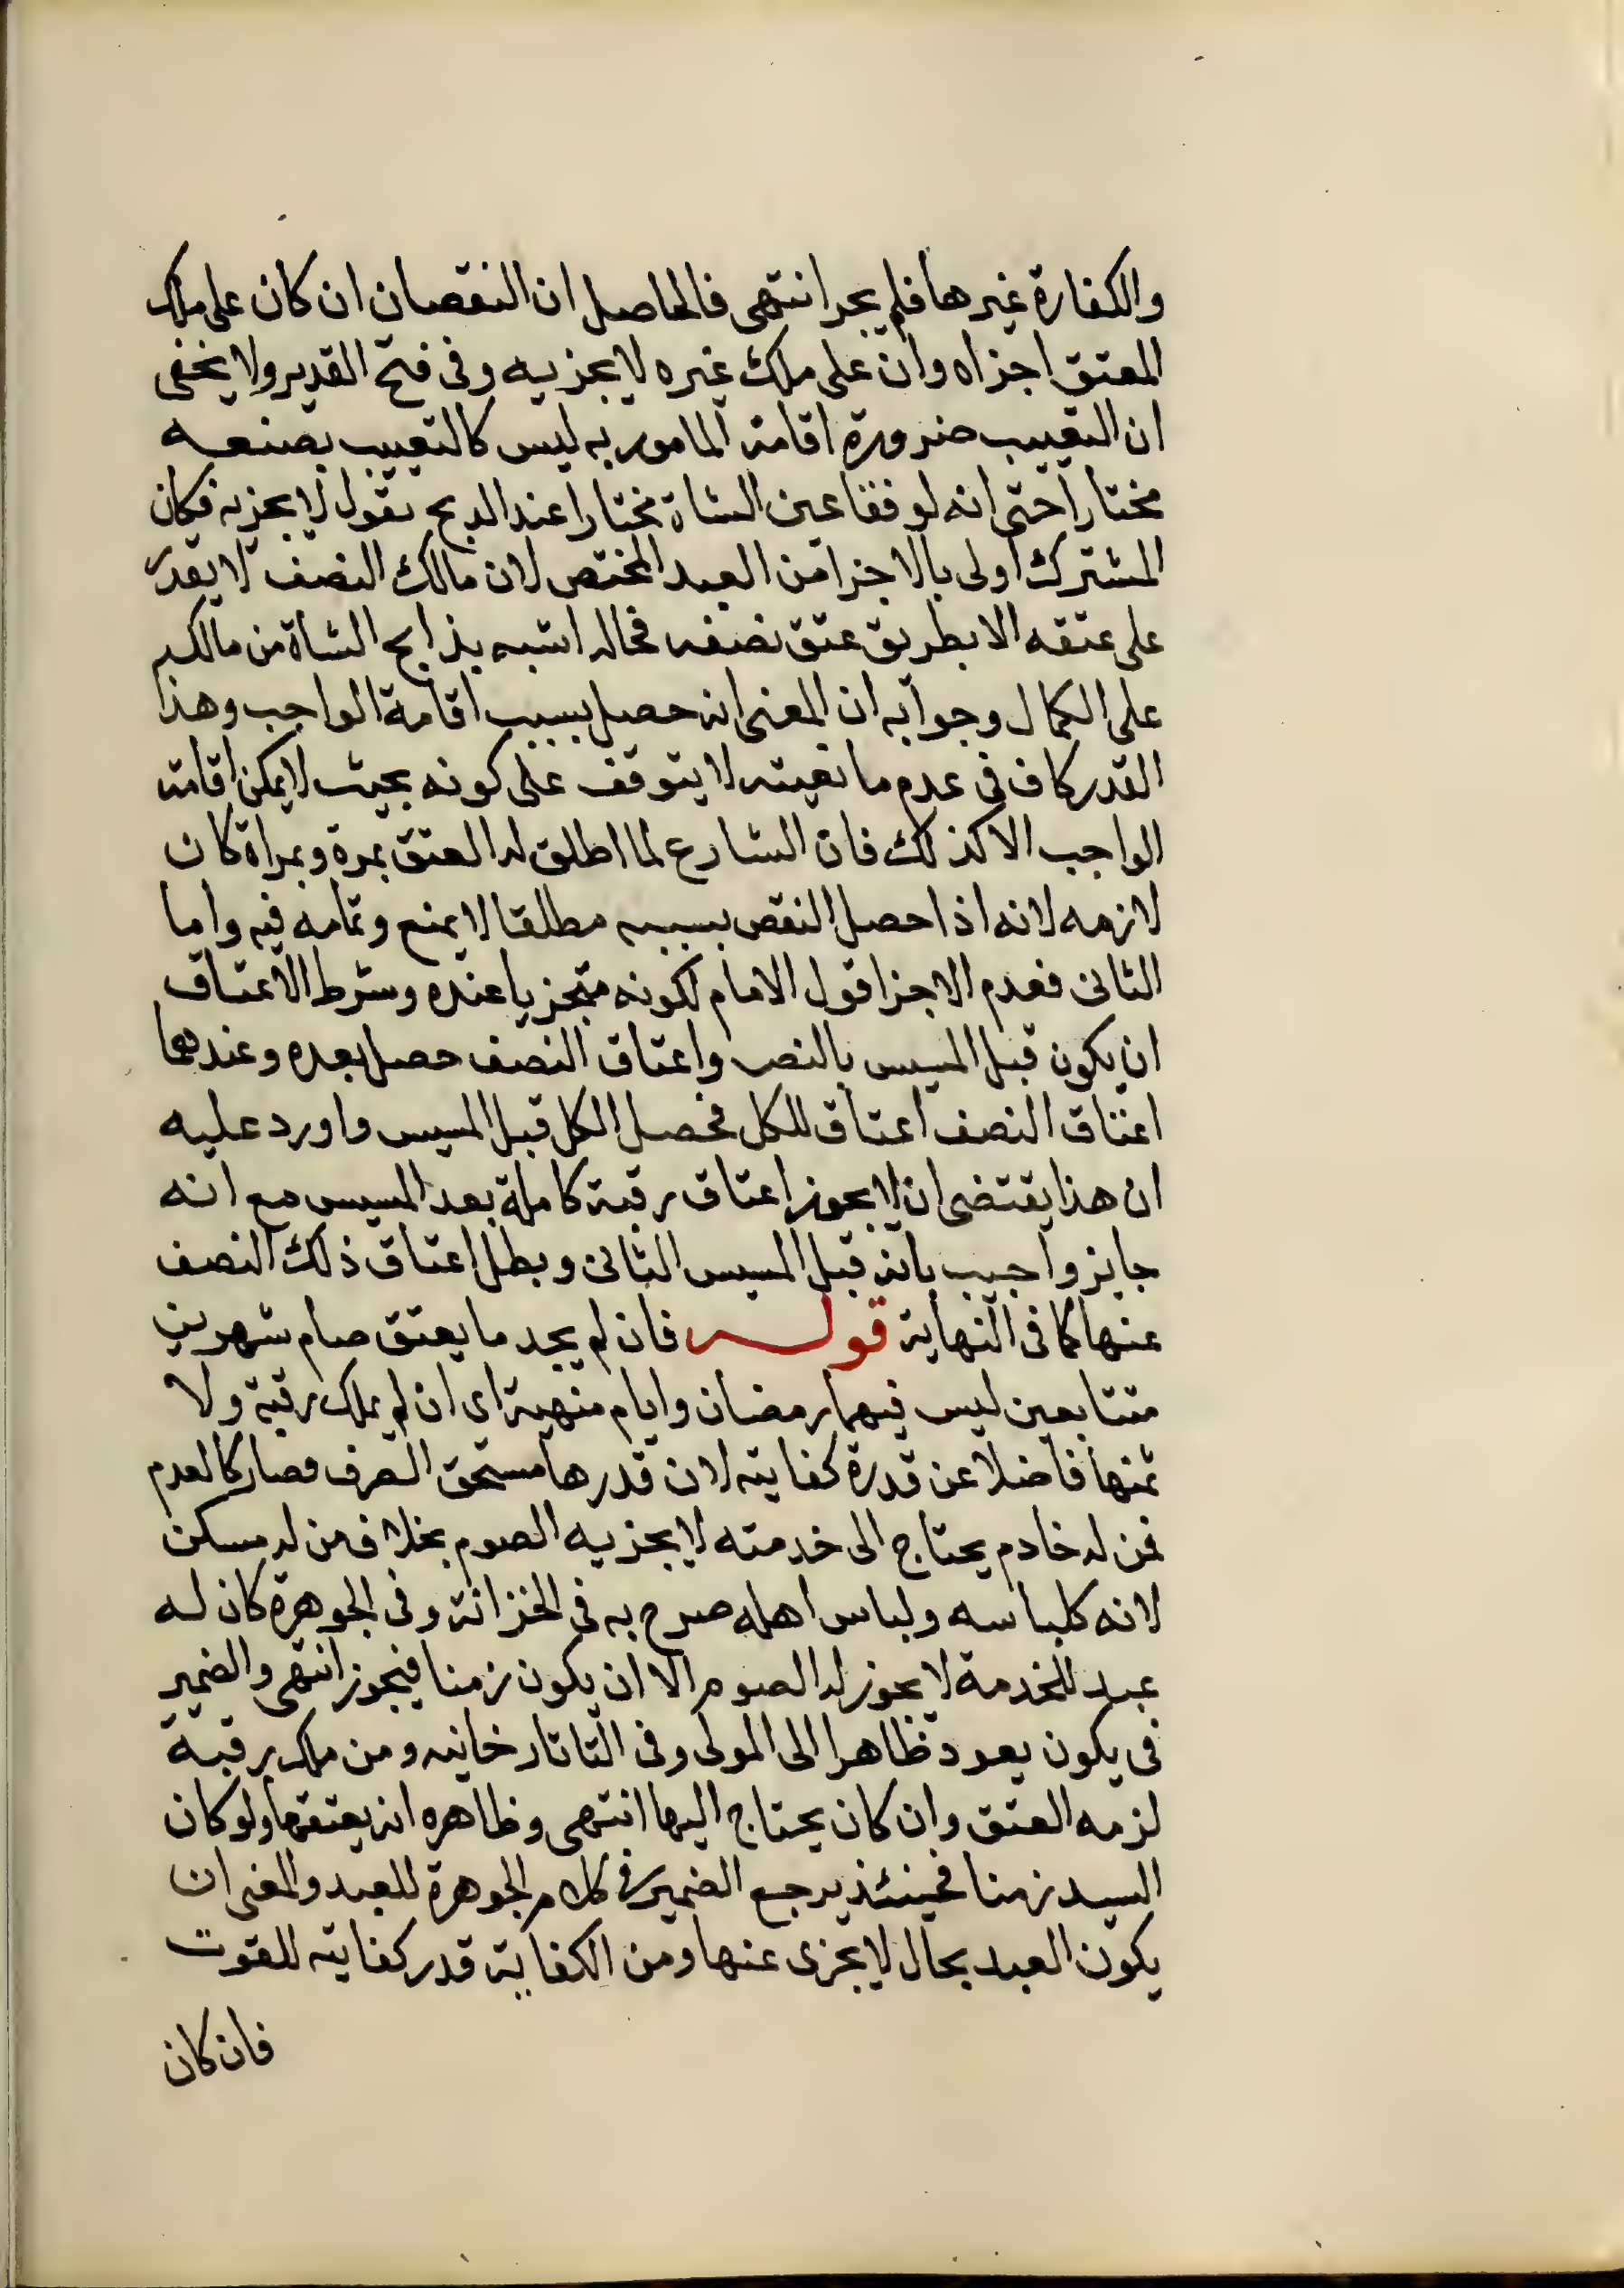 والكفارة غيرها فلم يجز انتهى فالحاصل ان النقصان ان كان على ملك
المعتق اجزاه وان على ملك غيره لا يجزيه وفى فتح القدير ولا يخفى
ان التعييب ضرورة اقامة المامور به ليس كالتعييب بصنعه
مختارا حتى انه لو فقا عين الشاة مختارا عند الذبح نقول لا يجزيه فكان
المشترك اولى بالاجزا من العبد المختص لان مالك النصف لا يقدر
على عتقه الا بطريق عتق نصفه فحاله اشبه بذابح الشاة من مالكه
على الكمال وجوابه ان المعنى انه حصل بسبب اقامة الواجب وهذا
القدر كاف فى عدم مانعيته لا يتوقف على كونه بحيث لا يمكن اقامة
الواجب الا كذلك فان الشارع لما اطلق له العتق بمرة وبمراة كان
لازمه لانه اذا حصل النقص بسببه مطلقا لا يمنع وتمامه فيه واما
الثانى فعدم الاجزا قول الامام لكونه متجزيا عنده وشرط الاعتاق
ان يكون قبل المسيس بالنص واعتاق النصف حصل بعده وعندهما
اعتاق النصف اعتاق للكل فحصل الكل قبل المسيس واورد عليه
ان هذا يقتضى ان لا يجوز اعتاق رقبة كاملة بعد المسيس مع انه
جايز واجيب بانه قبل المسيس الثانى وبطل اعتاق ذلك النصف
عنها كما فى النهاية قوله فان لم يجد ما يعتق صام شهرين
متتابعين ليس فيهما رمضان وايام منهية اى ان لم يملك رقبة ولا
ثمنها فاضلا عن قدرة كفايته لان قدرها مستحق الصرف فصار كالعدم
فمن له خادم يحتاج الى خدمته لا يجزيه الصوم بخلاف من له مسكن
لانه كلباسه ولباس اهله صرح به فى الخزانة وفى الجوهرة كان له
عبد للخدمة لا يجوز له الصوم الا ان يكون زمنا فيجوز انتهى والضمير
فى يكون يعود ظاهرا الى المولى وفى التاتارخانيه ومن ملك رقبة
لزمه العتق وان كان يحتاج اليها انتهى وظاهره انه يعتقها ولو كان
السيد زمنا فحينئذ يرجع الضمير فى كلام الجوهرة للعبد والمعنى ان
يكون العبد بحال لا يجزى عنها ومن الكفاية قدر كفايته للقوت
فان كان